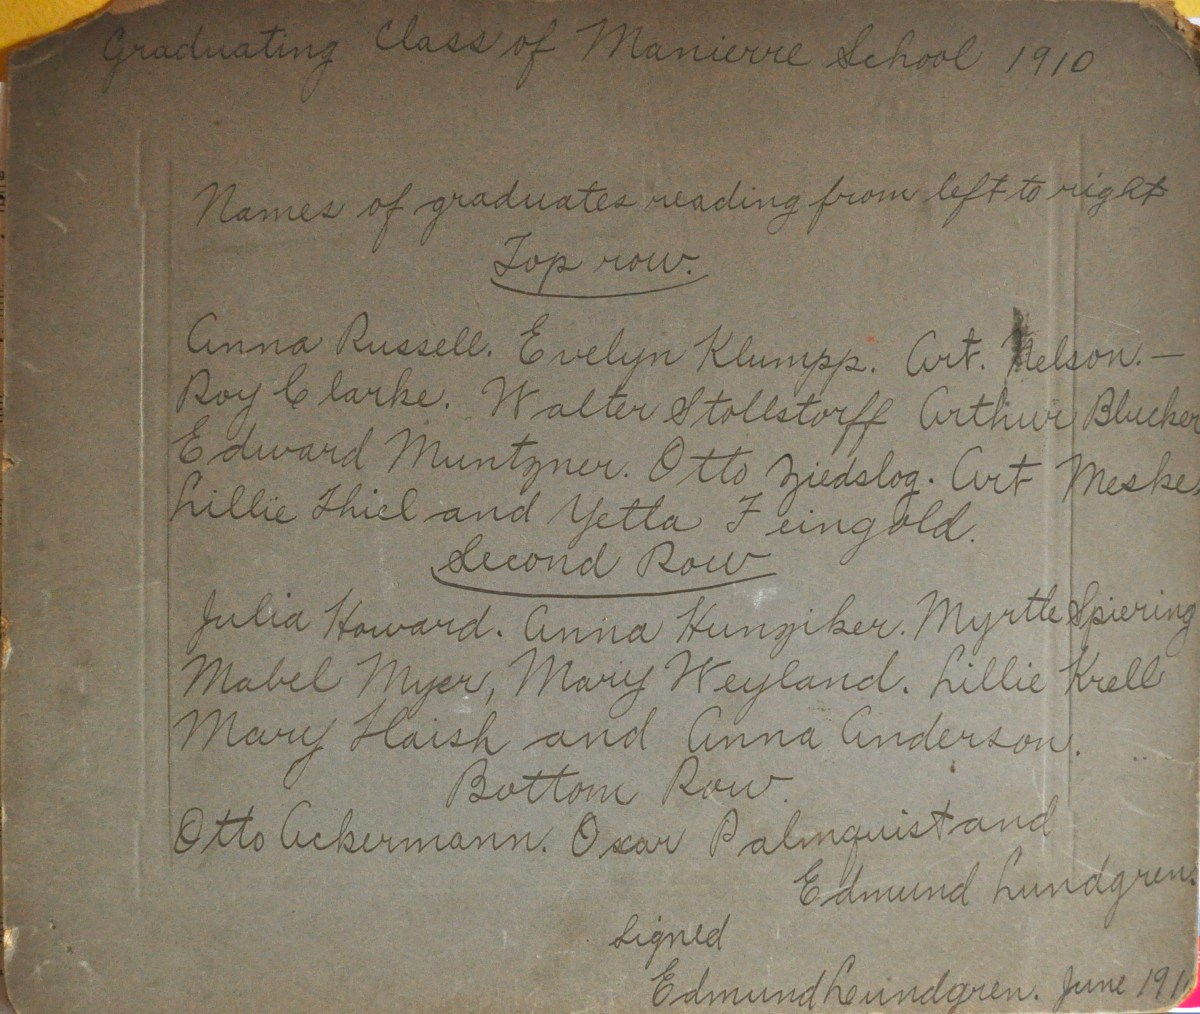 Graduating Class of Manierre School 1910
Names of graduates reading from left to right
Top row.
Anna Russell. Evelyn Klumpp. Art. Nelson. —
Roy Clarke. Walter Stollstorff Arthur Blucker
Edward Muntzner. Otto Ziedslog. Art Meske.
Lillie Thiel and Yetta Feingold.
Second Row
Julia Howard. Anna Hunziker. Myrtle Spiering
Mabel Myer, Mary Weyland. Lillie Krell
Mary Haish and Anna Anderson.
Bottom Row.
Otto Ackermann. Oscar Palmquist and
Edmund Lundgren.
Signed
Edmund Lundgren. June